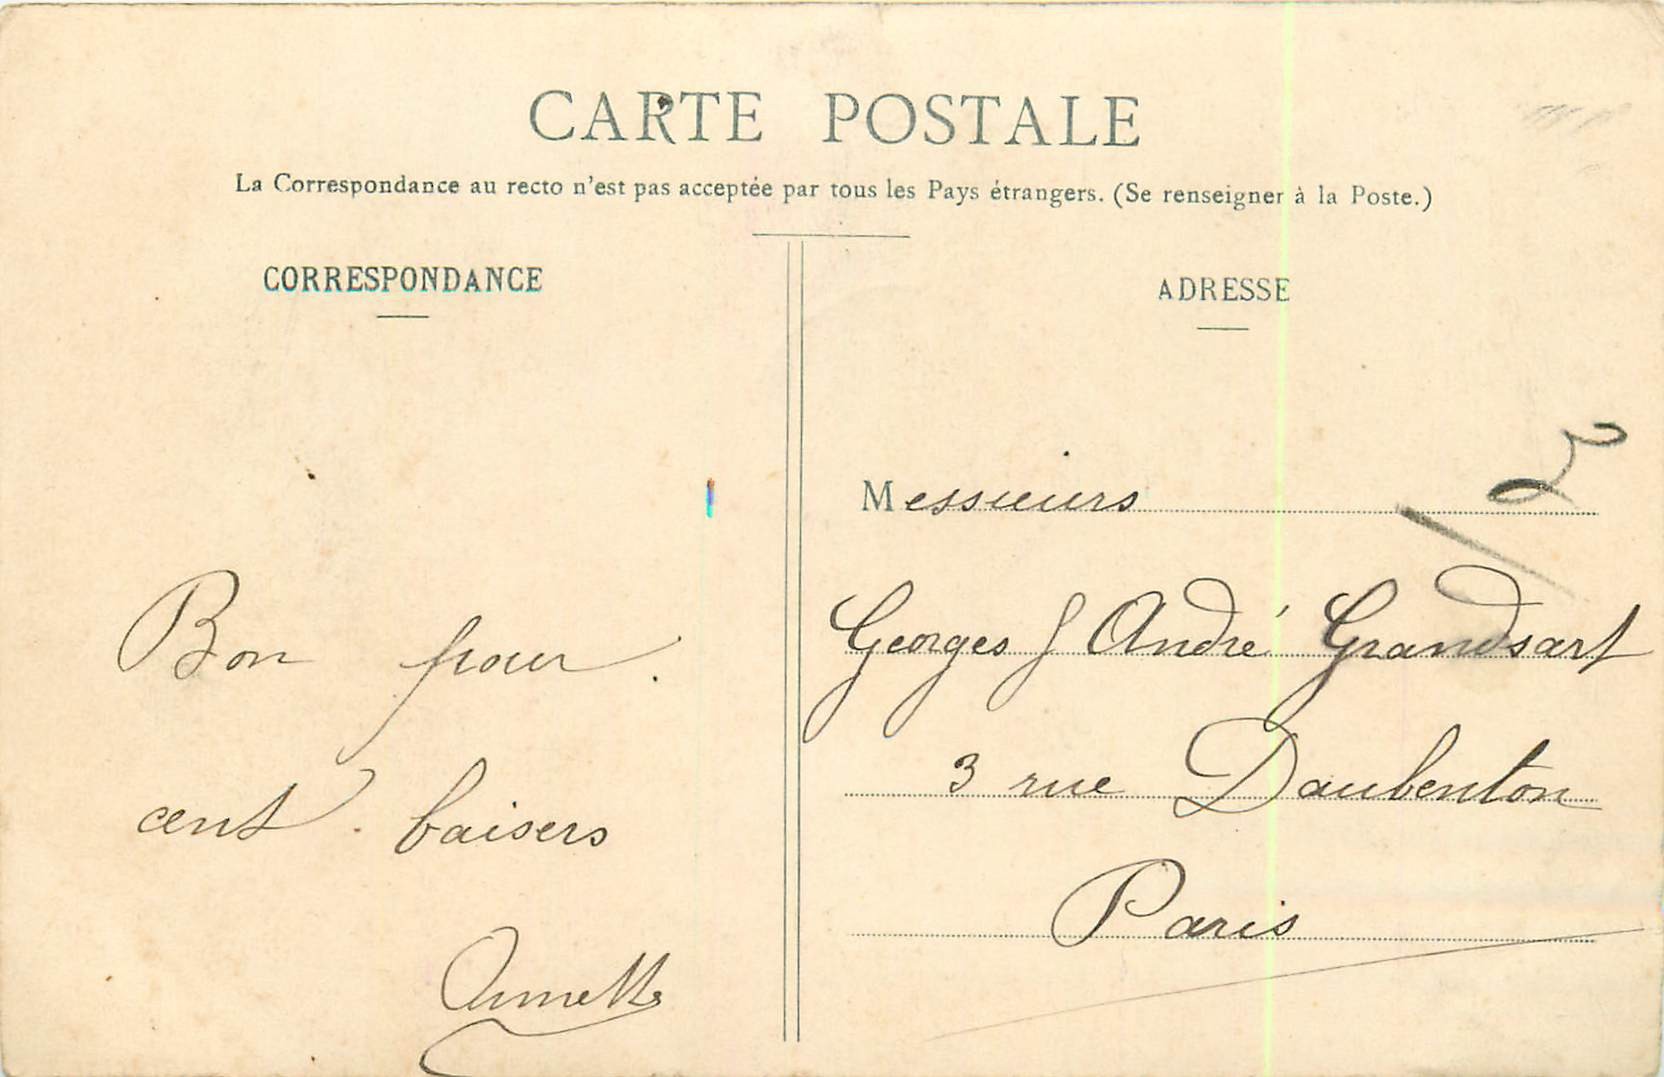 CARTE POSTALE
La Correspondance au recto n'est pas acceptée par tous les Pays étrangers. (Se renseigner à la Poste.)
CORRESPONDANCE
Bon pour
cent baisers
ADRESSE
Messieurs
Georges & André Grandsart
3 rue Daubenton
Paris